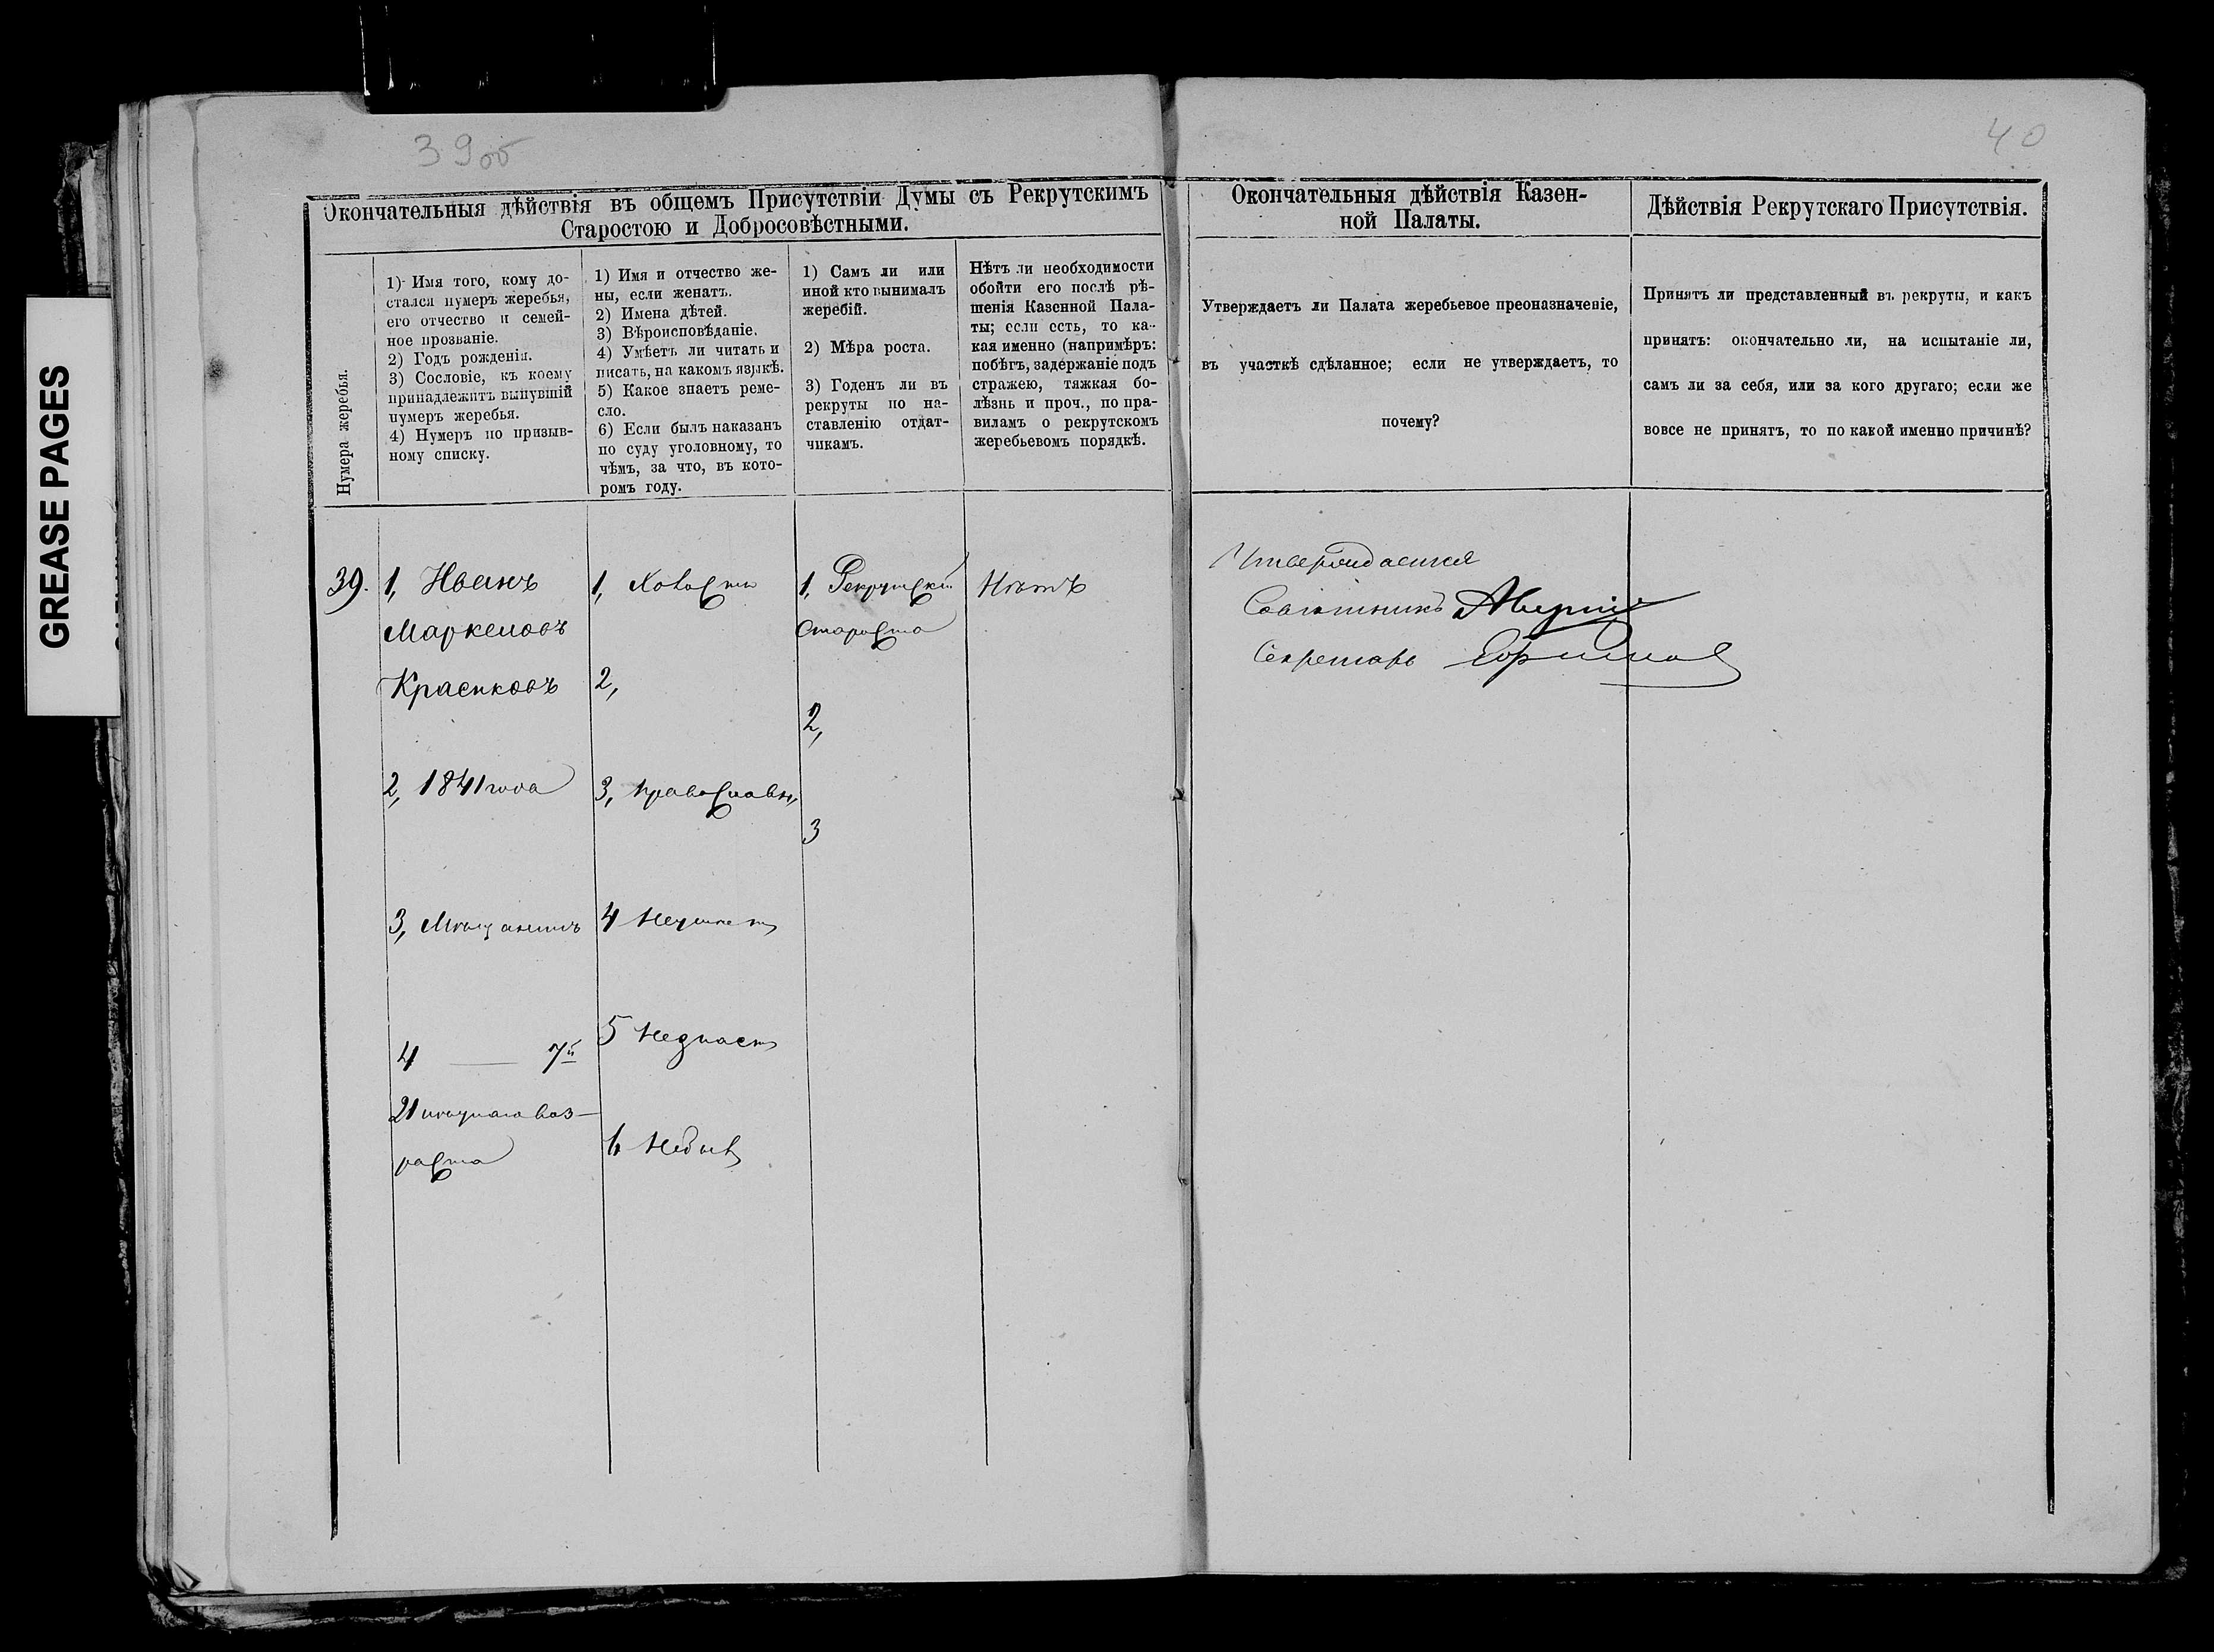 GREASE PAGES
39об
40
Окончательныя дѣйствія въ общемъ Присутствіи Думы съ Рекрутскимъ
Старостою и Добросовѣстными.
Нумера жеребья.
1) Имя того, кому до-
стался нумеръ жеребья,
его отчество и семей-
ное прозваніе.
2) Годъ рожденія.
3) Сословіе, къ коему
принадлежитъ вынувшій
нумеръ жеребья.
4) Нумеръ по призыв-
ному списку.
1) Имя и отчество же-
ны, если женатъ.
2) Имена дѣтей.
3) Вѣроисповѣданіе.
4) Умѣетъ ли читать и
писать, на какомъ языкѣ.
5) Какое знаетъ реме-
сло.
6) Если былъ наказанъ
по суду уголовному, то
чѣмъ, за что, въ кото-
ромъ году.
1) Самъ ли или
иной кто вынималъ
жеребій.
2) Мѣра роста.
3) Годенъ ли въ
рекруты по на-
ставленію отдат-
чикамъ.
Нѣтъ ли необходимости
обойти его послѣ рѣ-
шенія Казенной Пала-
ты; если есть, то ка-
кая именно (напримѣръ:
побѣгъ, задержаніе подъ
стражею, тяжкая бо-
лѣзнь и проч., по пра-
виламъ о рекрутскомъ
жеребьевомъ порядкѣ.
Окончательныя дѣйствія Казен-
ной Палаты.
Утверждаетъ ли Палата жеребьевое преоназначеніе,
въ участкѣ сдѣланное; если не утверждаетъ, то
почему?
Дѣйствія Рекрутскаго Присутствія.
Принятъ ли представленный въ рекруты, и какъ
принятъ: окончательно ли, на испытаніе ли,
самъ ли за себя, или за кого другаго; если же
вовсе не принятъ, то по какой именно причинѣ?
39.
1, Иванъ
Маркеловъ
Красиковъ
2, 1841 года
3, Мѣщанинъ
4 — 7й
21 лѣтнаго воз-
раста
1, Холостъ
2,
3, православн,
4 Неумѣетъ
5 Незнаетъ
6 Небылъ
1, Рекрутскій
Староста
2,
3
Нѣтъ
Утверждается
Совѣтникъ
Секретарь